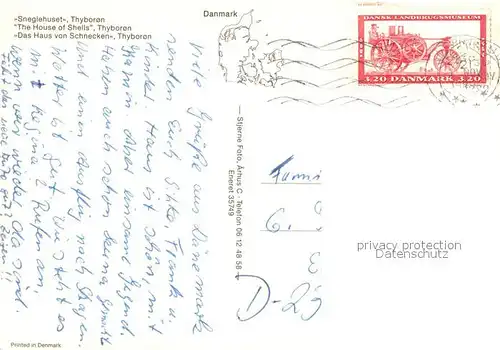 »Sneglehuset«, Thyborøn
"The House of Shells", Thyborøn
»Das Haus von Schnecken«, Thyborøn
Danmark
DANSK LANDBRUGSMUSEUM
3.20 DANMARK 3.20
Viele Grüße aus Dänemark
senden Euch Silke, Frank u.
Kinder. Haus ist schön, mit
Kamin, aber einsame Gegend.
Haben auch schon
und einen Ausflug nach Skagen.
Wetter ist gut. Wie steht es
mit Regina? Rufen an,
wenn wir wieder da sind.
— Stjerne Foto, Århus C - Telefon 06 12 48 58 —
Eneret 35749
6.
E
D-23
privacy protection
watermark
Printed in Denmark